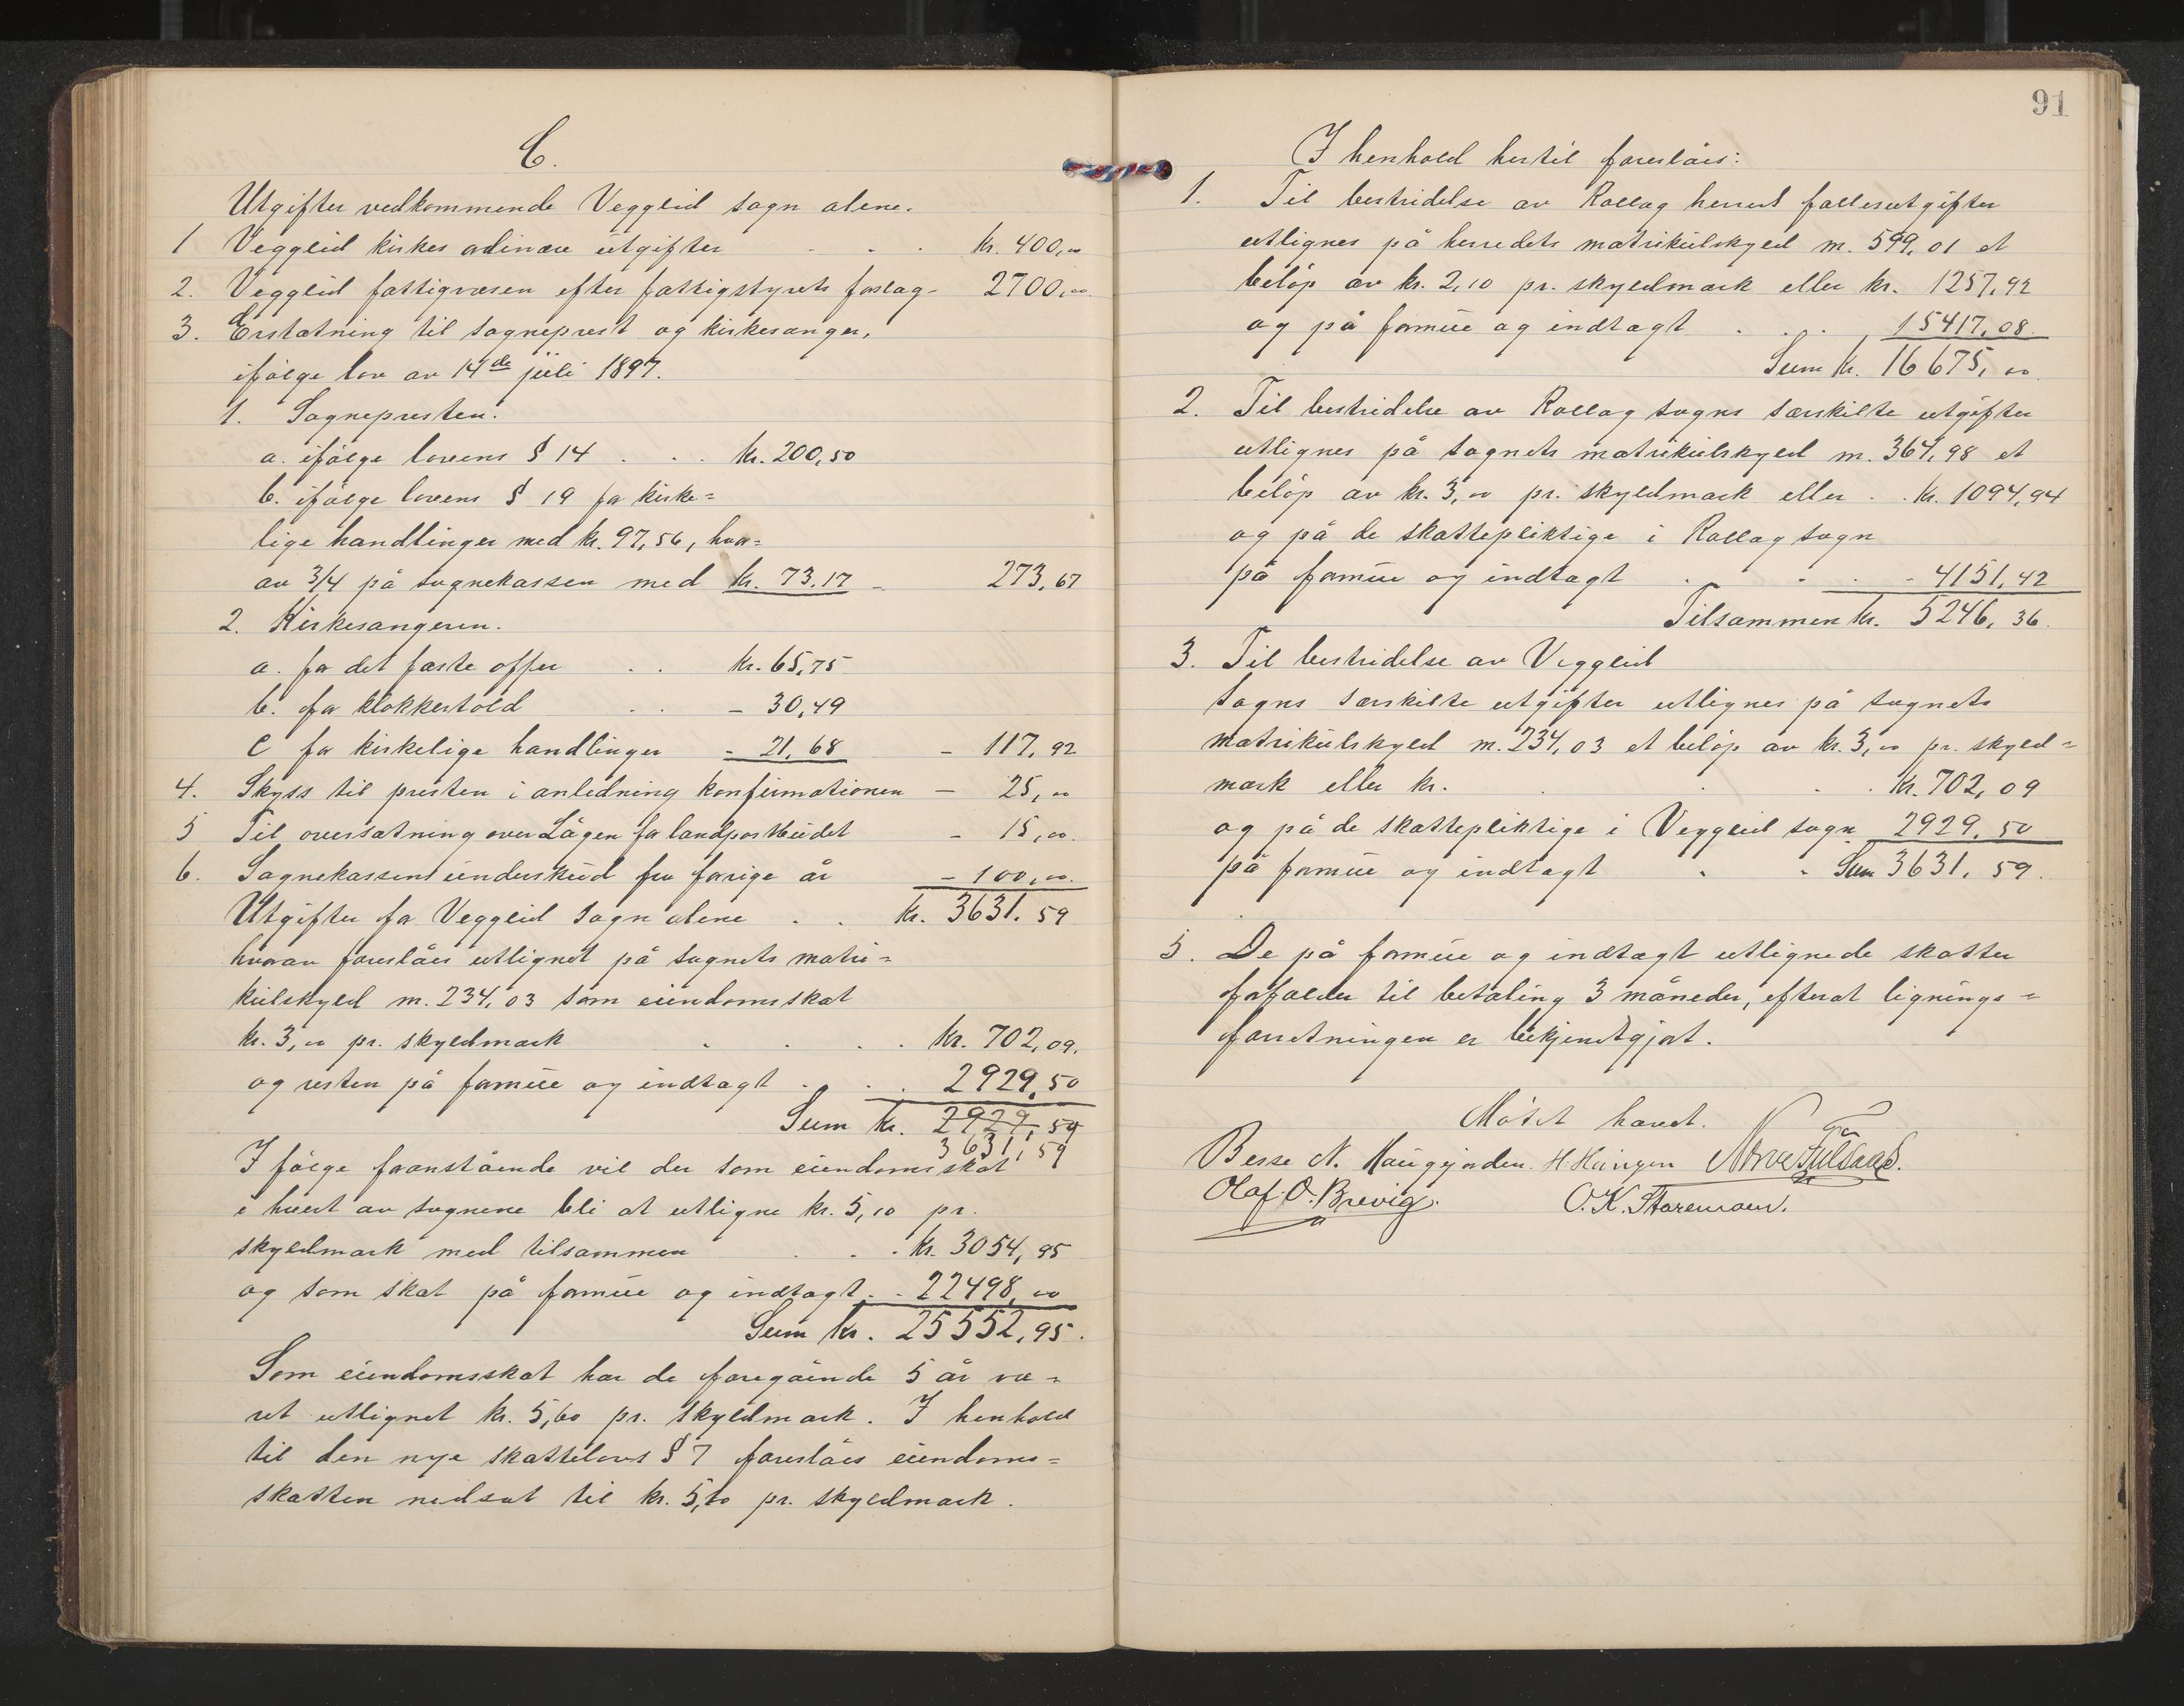 C.
Utgifter vedkommende Vegglid sogn alene.
1 Vegglid kirkes ordinære utgifter . . . kr. 400,00
2. Vegglid fattigvæsen efter fattigstyrets forslag - 2700,00.
3. Erstatning til sogneprest og kirkesanger,
ifølge lov av 14de juli 1897.
1. Sognepresten.
a. ifølge lovens § 14 . . . kr. 200,50
b. ifølge lovens § 19 for kirke=
lige handlinger med kr. 97,56, hvor=
av 3/4 på sognekassen med kr. 73.17 - 273,67
2. Kirkesangeren.
a. for det faste offer . . kr. 65,75
b. for klokkertold . . - 30,49
c for kirkelige handlinger - 21,68 - 117,92
4. Skyss til presten i anledning konfirmationen - 25,00
5 Til oversætning over Lågen for landpostbudet - 15,00.
6. Sognekassens underskud fra forrige år - 100,00.
Utgifter for Vegglid sogn alene . . kr. 3631.59
hvorav foreslåes utlignet på sognets matri=
kulskyld m. 234,03 som eiendomsskat
kr. 3,00 pr. skyldmark . . . . kr. 702,09.
og resten på formue og indtægt . . . 2929,50
Sum kr. 2929,59
3631,59
I følge foranstående vil der som eiendomsskat
i hvert av sognene bli at utligne kr. 5,10 pr.
skyldmark med tilsammen . . . kr. 3054,95
og som skat på formue og indtægt . . 22498,00
Sum kr. 25552,95.
Som eiendomsskat har de foregående 5 år væ=
ret utlignet kr. 5,60 pr. skyldmark. I henhold
til den nye skattelovs § 7 foreslåes eiendoms=
skatten nedsat til kr. 5,10 pr. skyldmark.
91
I henhold hertil foreslåes:
1. Til bestridelse av Rollag herred fællesutgifter
utlignes på herredets matrikulskyld m. 599,01 et
beløp av kr. 2,10 pr. skyldmark eller kr. 1257,92
og på formue og indtægt . . . 15417,08.
Sum kr. 16675,00
2. Til bestridelse av Rollag sogns særskilte utgifter
utlignes på sognets matrikulskyld m. 364,98 et
beløp av kr. 3,00 pr. skyldmark eller . . kr. 1094,94
og på de skattepliktige i Rollag sogn
på formue og indtægt . . . - 4151,42
Tilsammen kr. 5246,36.
3. Til bestridelse av Vegglid
sogns særskilte utgifter utlignes på sognets
matrikulskyld m. 234,03 et beløp av kr. 3,00 pr. skyld=
mark eller kr. . . . . kr. 702,09
og på de skattepliktige i Vegglid sogn 2929,50
på formue og indtægt . . Sum 3631,59.
5. De på formue og indtægt utlignede skatter
forfalder til betaling 3 måneder, efterat lignings=
forretningen er bekjendtgjort.
Møtet hævet.
Besse N. Haugjorden. H. Heingen Norve
Olaf. O. Brevig. O. K. Storemoen.